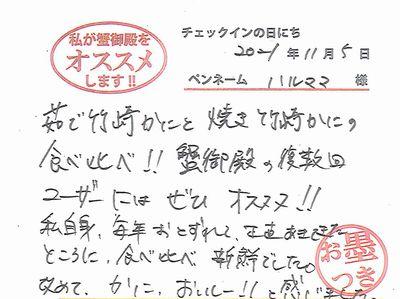 私が蟹御殿を
オススメ
します!!
チェックインの日にち
2021年11月5日
ペンネーム ハルママ 様
茹で竹崎かにと焼き竹崎かにの
食べ比べ!! 蟹御殿の複数回
ユーザーにはぜひオススメ!!
私自身、毎年おとずれて、正直あきてきた
ところに、食べ比べ 新鮮でした。
改めて、かに、おいしー!!と感じました
お墨
つき